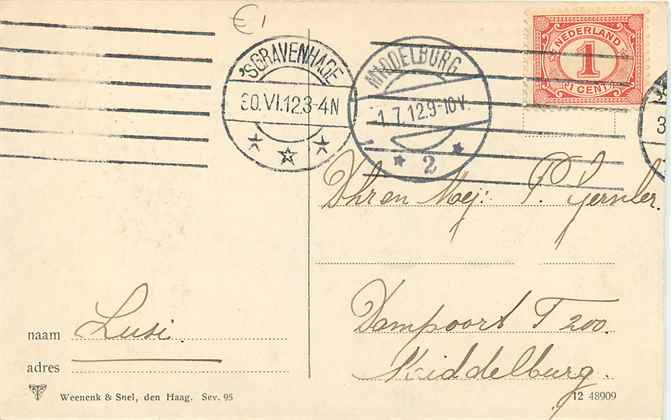 €1
'SGRAVENHAGE
30.VI.12.3-4N
MIDDELBURG
1.7.12.9-10V.
2
NEDERLAND
1
1 CENT
Dhr en Mej: P.
Dampoort T 200.
Middelburg.
naam Lusi.
adres
Weenenk & Snel, den Haag. Sev. 95
12 48909